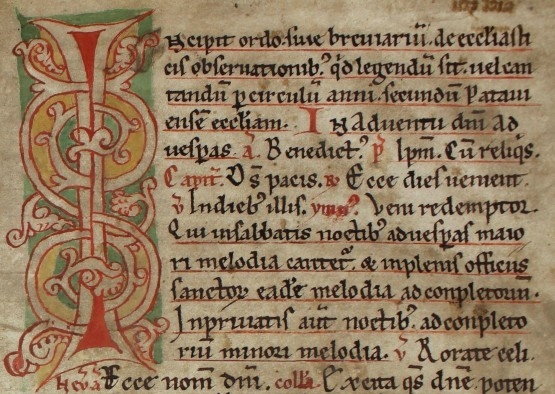 Incipit ordo. siue breuiariū. de eccl̄iasti
cis obseruationib᷒. q̇d legendū sit. uel can
tandū ꝑ circulū anni. secundū ꝑataui
ensē eccl̄iam. IN Aduentu dn̄i ad
uesꝑas. a᷒. Benedict᷒. p᷒. Ipm̄. Cū reliq̇s.
Capit̄. D̄s pacis. ꝶ Ecce dies uenient.
v̄ In dieb᷒ illis. ymn᷒. Veni redemptor.
Qui in sabbatis noctib᷒ ad uesꝑas maio
ri melodia cantet᷒. & in plenis officiis
sanctoꝝ eadē melodia ad conpletoriū.
In priuatis aut̄ noctib᷒. ad conpleto
riū minori melodia. v̄ Rorate celi.
Ecce nom̄ dn̄i. coll̄a. Excita q̄s dn̄e. poten